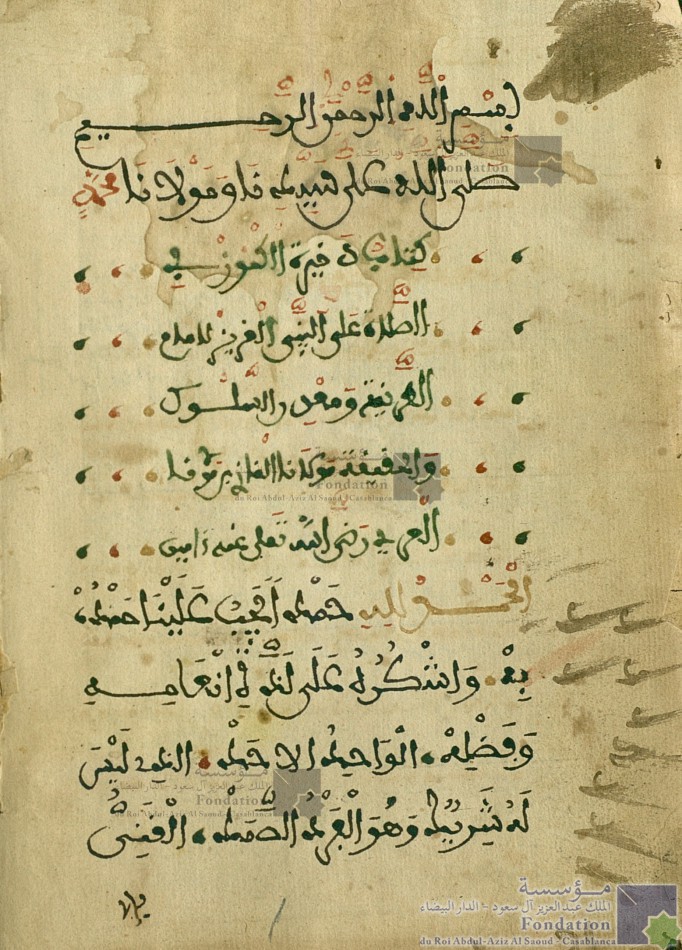 بسم الله الرحمن الرحيم
صلى الله على سيدنا ومولانا محمد
كتاب ذخيرة الكنوز في
الصلاة على النبي العزيز للامام
الشريعة ومعدن السلوك
والحقيقة مولانا القاضي
العربي رضي الله تعلى عنه ءامين
الحمد لله حمدا يجب علينا حمده
به واشكره على انعامه
وفضله الواحد الاحد الذي ليس
له شريك وهو الفرد الصمد الغني
مؤسسة
الملك عبد العزيز آل سعود - الدار البيضاء
Fondation
du Roi Abdul-Aziz Al Saoud - Casablanca